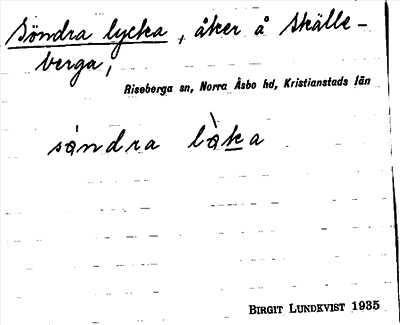 Söndra lycka, åker å Skälle-
berga,
Riseberga sn, Norra Åsbo hd, Kristianstads län
sándra lòka
BIRGIT LUNDKVIST 1935